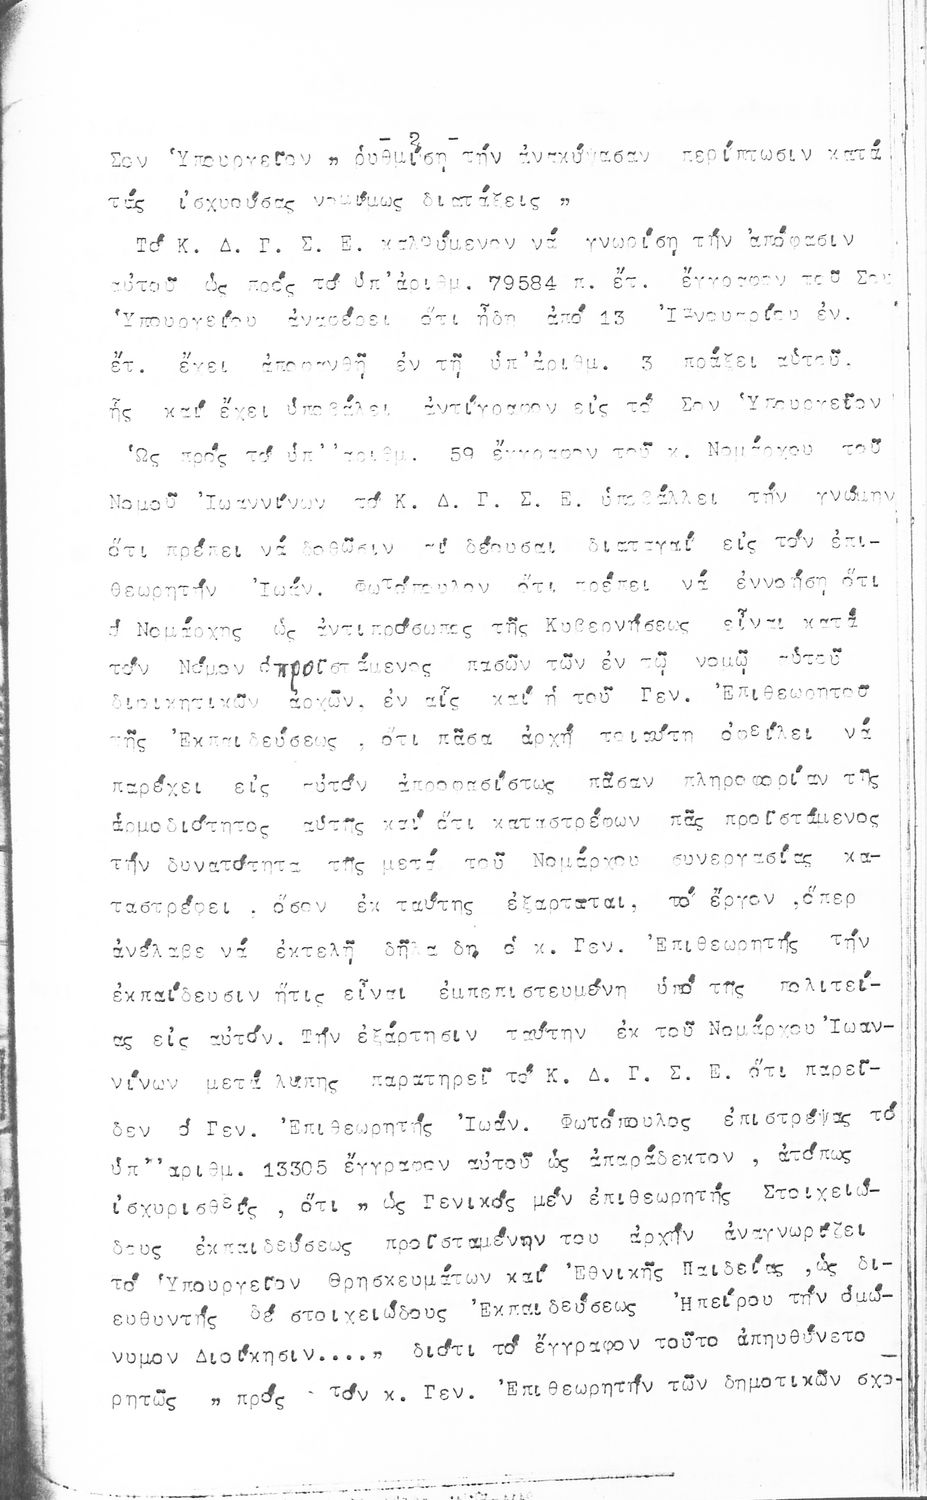 - 2 -
Σον Ὑπουργεῖον „ ρυθμίση τήν ἀνακύψασαν περίπτωσιν κατά
τάς ἰσχυούσας νομίμως διατάξεις „
Τό Κ. Δ. Γ. Σ. Ε. καλούμενον νά γνωρίση τήν ἀπόφασιν
αὐτοῦ ὡς πρός τό ὑπ'ἀριθμ. 79584 π. ἔτ. ἔγγραφον τοῦ Σου
Ὑπουργείου ἀναφέρει ὅτι ἤδη ἀπό 13 Ἰανουαρίου ἐν.
ἔτ. ἔχει ἀποφανθῆ ἐν τῆ ὑπ'ἀριθμ. 3 πράξει αὐτοῦ,
ἧς καί ἔχει ὑποβάλει ἀντίγραφον εἰς τό Σον Ὑπουργεῖον
Ὡς πρός τό ὑπ''αριθμ. 59 ἔγγραφον τοῦ κ. Νομάρχου τοῦ
Νομοῦ Ἰωαννίνων τό Κ. Δ. Γ. Σ. Ε. ὑποβάλλει τήν γνώμην
ὅτι πρέπει νά δοθῶσιν αί δέουσαι διαταγαί εἰς τόν ἐπι-
θεωρητήν Ἰωάν. Φωτόπουλον ὅτι πρέπει νά ἐννοήση ὅτι
ὁ Νομάρχης ὡς ἀντιπρόσωπος τῆς Κυβερνήσεως εἶναι κατά
τόν Νόμον ὁ προϊστάμενος πασῶν τῶν ἐν τῷ νομῷ αὐτοῦ
διοικητικῶν ἀρχῶν, ἐν αἷς καί ἡ τοῦ Γεν. Ἐπιθεωρητοῦ
τῆς Ἐκπαιδεύσεως , ὅτι πᾶσα ἀρχή τοιαύτη ὀφείλει νά
παρέχει εἰς αὐτόν ἀπροφασίστως πᾶσαν πληροφορίαν τῆς
ἁρμοδιότητος αὐτῆς καί ὅτι καταστρέφων πᾶς προϊστάμενος
τήν δυνατότητα τῆς μετά τοῦ Νομάρχου συνεργασίας κα-
ταστρέφει , ὅσον ἐκ ταύτης ἐξαρτᾶται, τό ἔργον ,ὅπερ
ἀνέλαβε νά ἐκτελῆ δῆλα δη ὁ κ. Γεν. Ἐπιθεωρητής τήν
ἐκπαίδευσιν ἥτις εἶναι ἐμπεπιστευμένη ὑπό τῆς πολιτεί-
ας εἰς αὐτόν. Τήν ἐξάρτησιν ταύτην ἐκ τοῦ Νομάρχου Ἰωαν-
νίνων μετά λυπης παρατηρεῖ τό Κ. Δ. Γ. Σ. Ε. ὅτι παρεῖ-
δεν ὁ Γεν. Ἐπιθεωρητής Ἰωάν. Φωτόπουλος ἐπιστρέψας τό
ὑπ''αριθμ. 13305 ἔγγραφον αὐτοῦ ὡς ἀπαράδεκτον , ἀτόπως
ἰσχυρισθείς , ὅτι „ ὡς Γενικός μέν ἐπιθεωρητής Στοιχειώ-
δους ἐκπαιδεύσεως προϊσταμένην του ἀρχήν ἀναγνωρίζει
τό Ὑπουργεῖον Θρησκευμάτων καί Ἐθνικῆς Παιδείας ,ὡς δι-
ευθυντής δέ στοιχειώδους Ἐκπαιδεύσεως Ἠπείρου τήν ὁμώ-
νυμον Διοίκησιν....„ διότι τό ἔγγραφον τοῦτο ἀπηυθύνετο
ρητῶς „ πρός τόν κ. Γεν. Ἐπιθεωρητήν τῶν δημοτικῶν σχο-